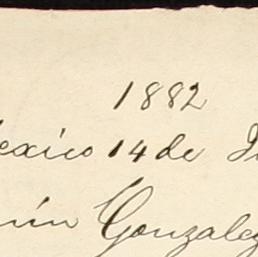 1882
exico 14 de
Gonzalez